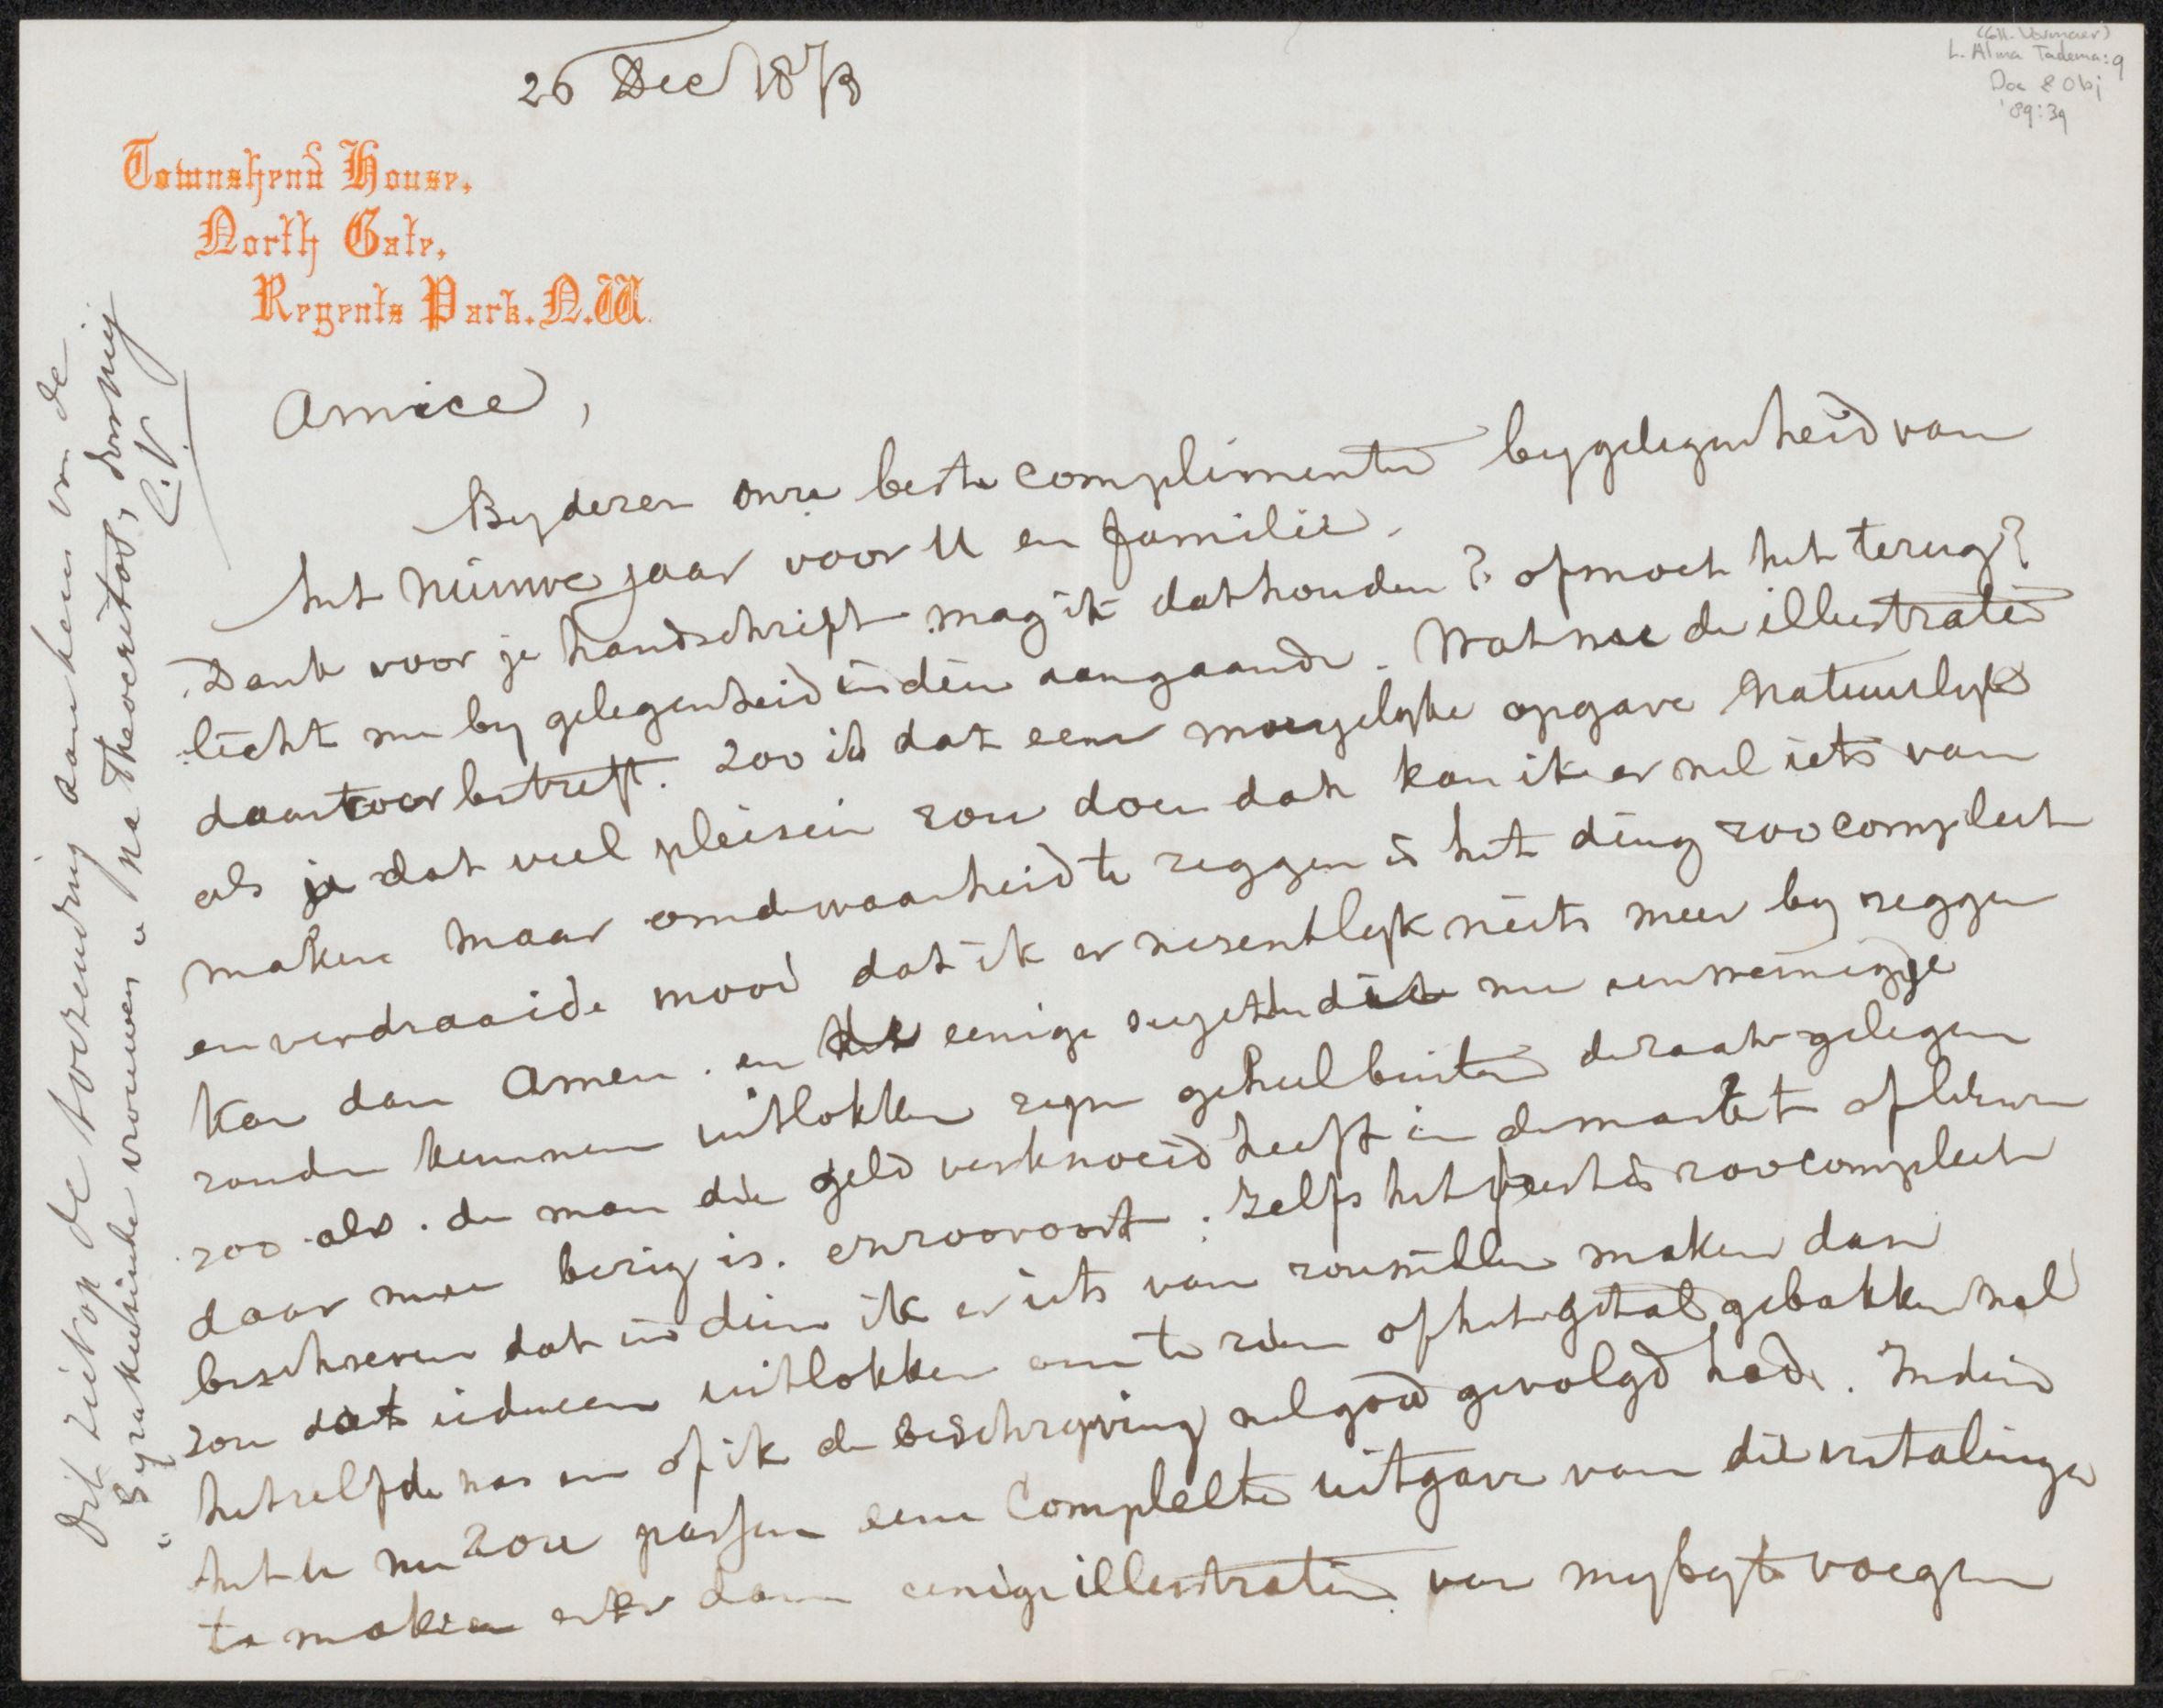 26 Dec 1873
(Coll. Vosmaer)
L. Alma Tadema: 9
Doc & Obj
'89:39
Townshend House,
North Gate,
Regents Park. N.W.
Amice,
Byderen onze beste complimenten bygelegenheid van
het nieuwe jaar voor U en familie.
Dank voor je handschrift mag ik dat houden? of moet het terug?
licht me by gelegenheid indien aangaande. Wat nu de illustratie
daartoor betreft. zoo is dat eene moeyelyke opgave natuurlyk
als je dat veel pleisein zou doen dan kan ik er wel iets van
maken maar om de waarheid te zeggen is het ding zoo compleet
en verdraaide mooi dat ik er wesentlyk niets meer by zeggen
kan dan Amen. en de eenige sujetten die me een weinigje
zouden kunnen uitlokken zyn geheel buiten de zaak gelegen
zoo als. de man die geld verknoeid heeft in de markt of
daar mee bezig is. enzoovoort. Zelfs het feest is zoo compleet
beschreven dat indien ik er iets van zou willen maken dan
zou dat iedereen uitlokken om te zien of het getal gebakken wel
hetzelfde was en of ik de beschryving wel goed gevolgd had. Indien
het u nu zou passen eene complete uitgave van die vertalingen
te maken en er dan eenige illustratie van my by te voegen
Dit ziet op de toezending aan hem van de
"Syrakusische vrouwen" na Theocritos, door mij
C.V.